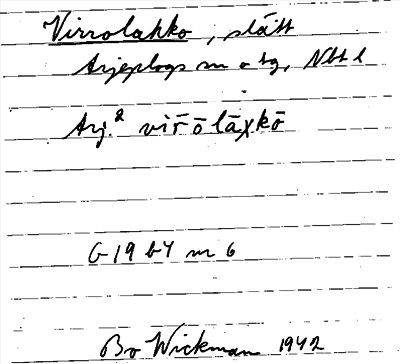 Virrolakko, slått
Arjeplogs sn o tg, Nbt l
Arj.² vir̄ōlāχkō
G 19 b4 nr 6
Bo Wickman 1942